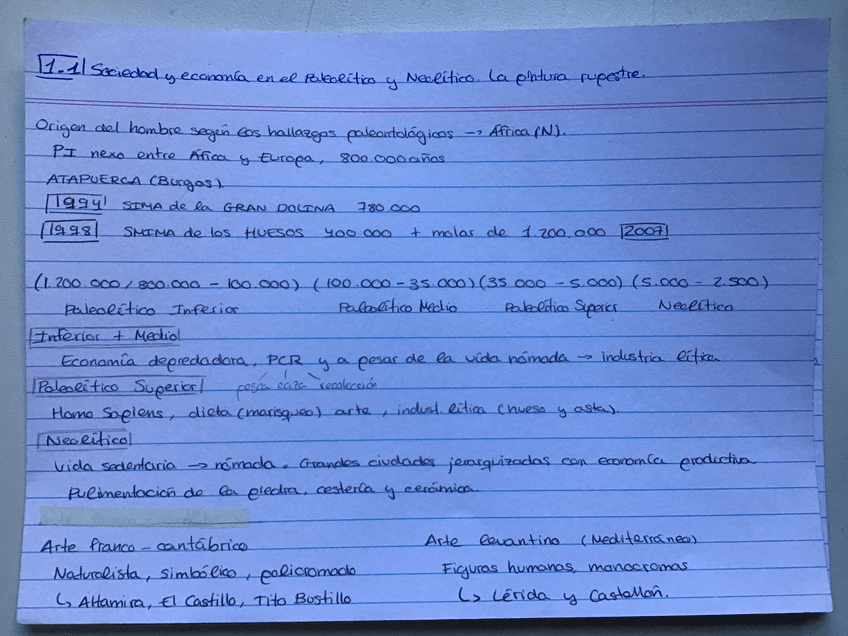 1.1 Sociedad y economía en el Paleolítico y Neolítico. La pintura rupestre.
Origen del hombre según los hallazgos paleontológicos → África (N).
PI nexo entre África y Europa, 800.000 años
ATAPUERCA (Burgos)
1994 SIMA de la GRAN DOLINA 780.000
1998 SMIMA de los HUESOS 400.000 + molar de 1.200.000 2007
(1.200.000 / 800.000 - 100.000) (100.000 - 35.000) (35.000 - 5.000) (5.000 - 2.500)
Paleolítico Inferior Paleolítico Medio Paleolítico Superior Neolítico
Inferior + Medio
Economía depredadora, PCR y a pesar de la vida nómada → industria lítica
Paleolítico Superior pesca caza recolección
Homo Sapiens, dieta (marisqueo) arte, indust. lítica (hueso y asta).
Neolítico
Vida sedentaria → nómada. Grandes ciudades jerarquizadas con economía productiva
Pulimentación de la piedra, cestería y cerámica.
Arte franco-cantábrico Arte levantino (Mediterráneo)
Naturalista, simbólico, policromado Figuras humanas, monocromas
↳ Altamira, El Castillo, Tito Bustillo ↳ Lérida y Castellón.